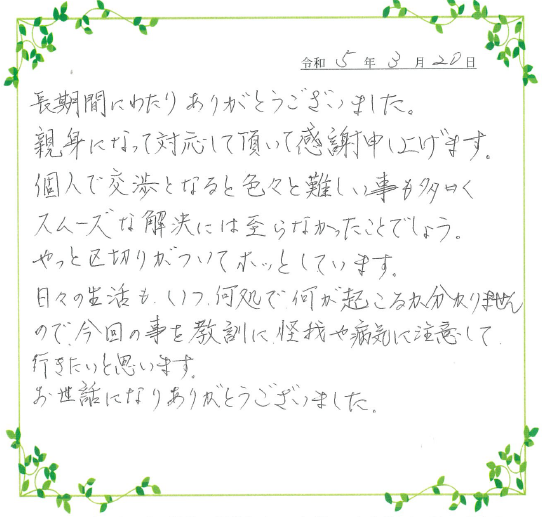 令和 5 年 3 月 20 日
長期間にわたりありがとうございました。
親身になって対応して頂いて感謝申し上げます。
個人で交渉となると色々と難しい事も多く
スムーズな解決には至らなかったことでしょう。
やっと区切りがついてホッとしています。
日々の生活も、いつ、何処で何が起こるか分かりません
ので、今回の事を教訓に、怪我や病気に注意して
行きたいと思います。
お世話になりありがとうございました。